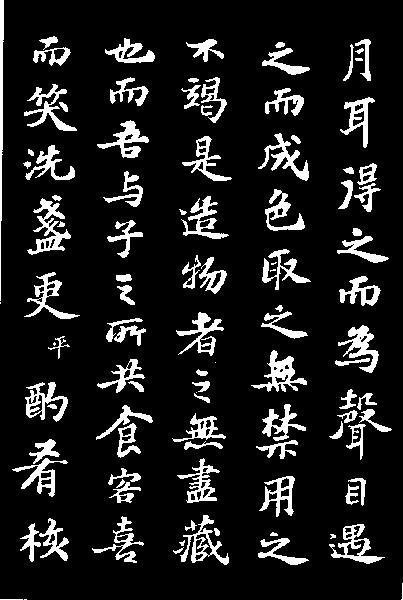 月耳得之而為聲目遇
之而成色取之無禁用之
不竭是造物者之無盡藏
也而吾与子之所共食客喜
而笑洗盞更平酌肴核